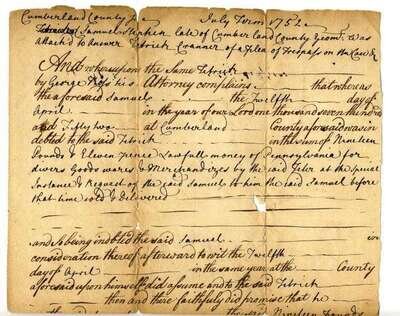 Cumberland County ss July Term 1752
Samuel Stephen, late of Cumberland County Yeom. was
attach'd to answer Patrick Conner of a Plea of Trespass on the Case &
And whereupon the same Patrick
by George Ross his Attorney complains that whereas
the aforesaid Samuel the twelfth day of
April in the year of our Lord one thousand seven hundred
and Fifty two at Cumberland County aforesaid was in
debted to the said Patrick in the sum of Nineteen
Pounds & Eleven Pence Lawfull money of Pennsylvania for
divers Goods wares & Merchandizes by the said at the special
Instance & Request of the said Samuel to him the said Samuel before
that time sold & delivered
and so being indebted the said Samuel in
consideration thereof afterward to wit the Twelfth
day of April in the same year at the County
aforesaid upon himself did assume and to the said Patrick
then and there faithfully did promise that he
the said Nineteen Pounds